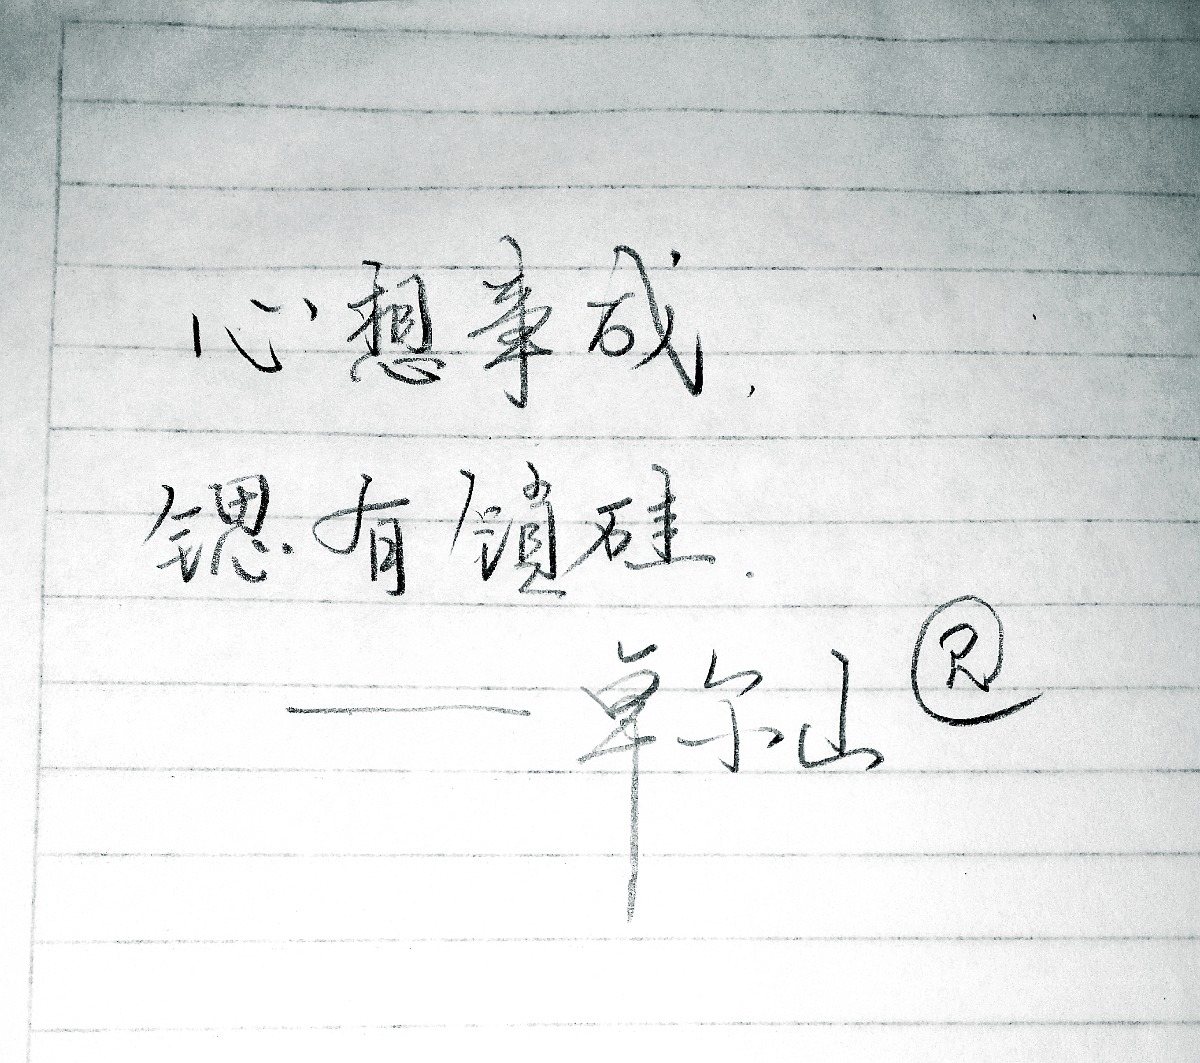 心想事成，
锶有锁硅.
——卓尔山 ®